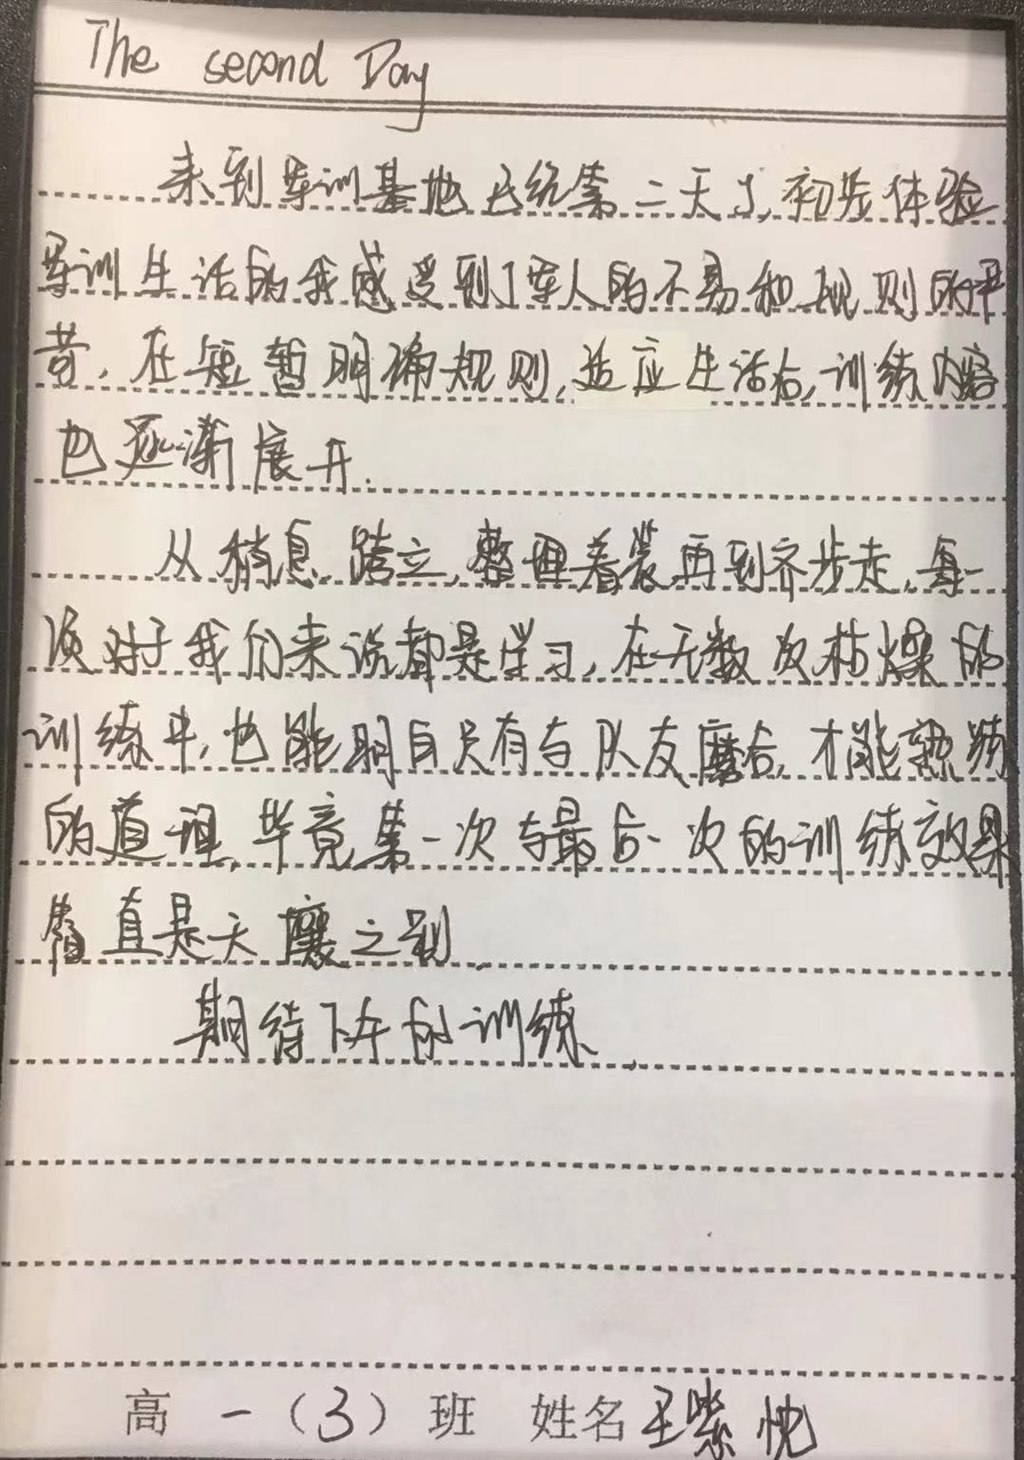 The second Day
来到军训基地已经第二天了,初步体验
军训生活的我感受到了军人的不易和规则的严
苛,在短暂明确规则,适应生活后,训练内容
也逐渐展开.
从稍息,跨立,整理着装再到齐步走,每一
项对于我们来说都是学习,在无数次枯燥的
训练中,也能明白只有与队友磨合,才能熟练
的道理,毕竟第一次与最后一次的训练效果
简直是天壤之别.
期待下午的训练.
高一(3)班 姓名王紫忱